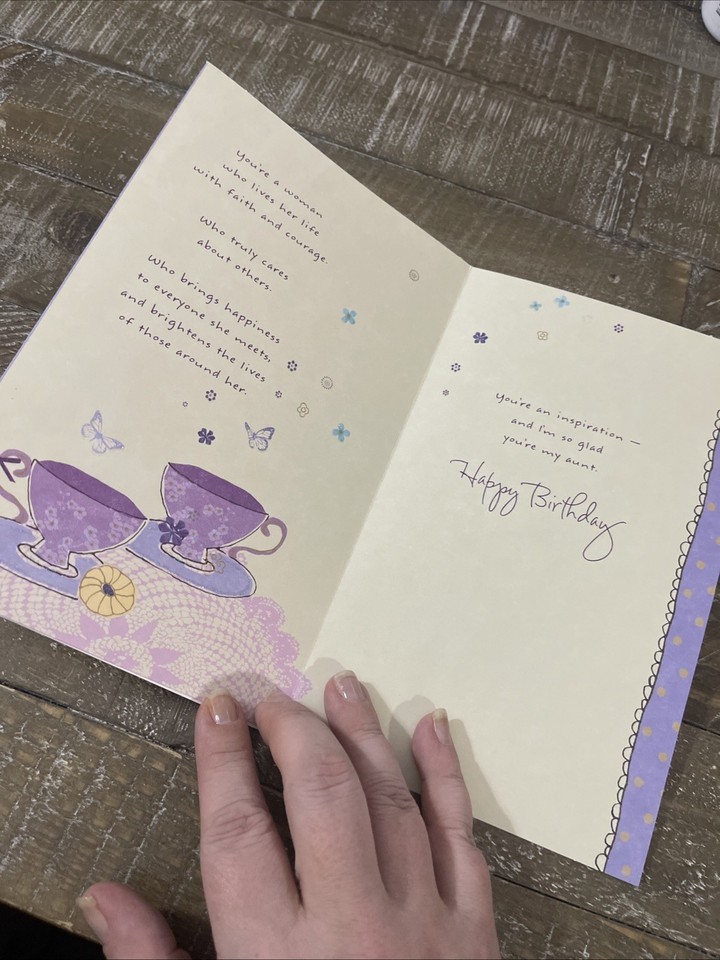 You're a woman
who lives her life
with faith and courage.
Who truly cares
about others.
Who brings happiness
to everyone she meets,
and brightens the lives
of those around her.
You're an inspiration —
and I'm so glad
you're my aunt.
Happy Birthday